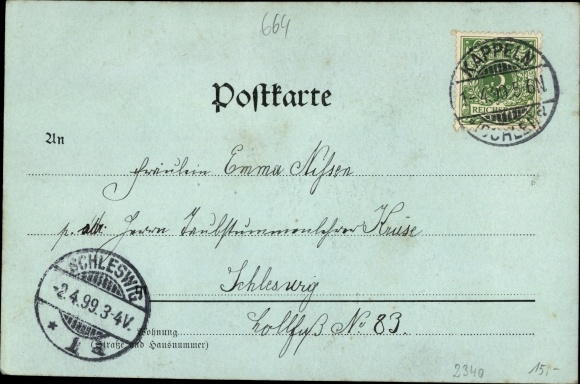 664
KAPPELN
5-6N
(SCHLEI)
REICHSPOST
Postkarte
An
Fräulein Emma Nissen
p. adr. Herrn Taubstummenlehrer Kruse
Schleswig
Lollfuß No 83.
SCHLESWIG
-2.4.99.3-4V.
* 1 a
Wohnung
(Straße und Hausnummer)
234a
15,-